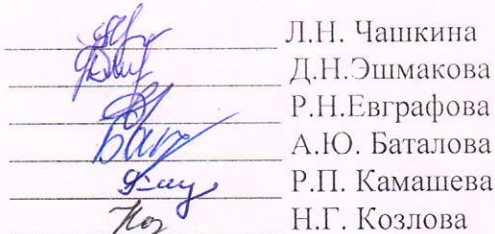 Л.Н. Чашкина
Д.Н.Эшмакова
Р.Н.Евграфова
А.Ю. Баталова
Р.П. Камашева
Н.Г. Козлова